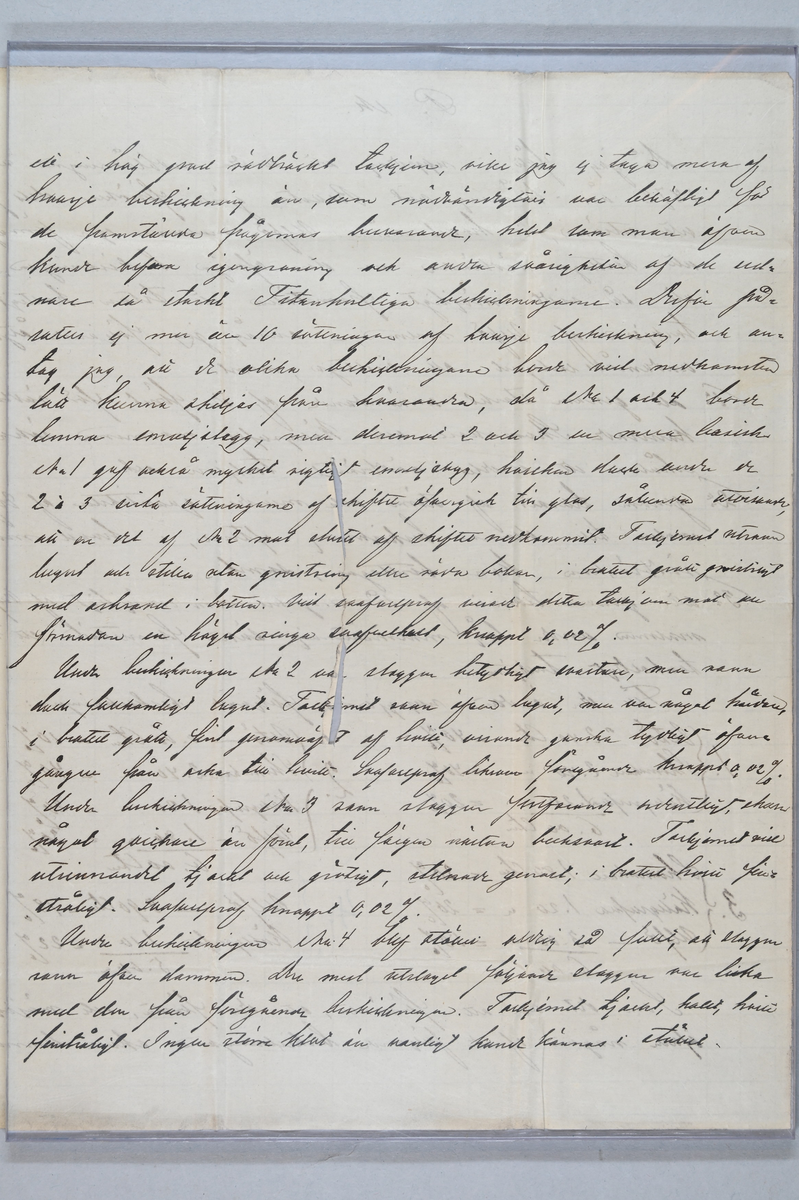 ett i hög grad rödbräckt tackjern, ville jag ej taga mera af
hvarje beskickning än, som nödvändigtvis var behöfligt för
de framstälda frågornas besvarande, helst som man äfven
kunde befara igengroning och andra svårigheter af de sed-
nare så starkt Titanhaltiga beskickningarne. Derför på-
sattes ej mer än 10 sättningar af hvarje beskickning, och an-
tog jag, att de olika beskickningarne borde vid nedkomsten
lätt kunna skiljas från hvarandra, då No 1 och 4 borde
lemna emaljslagg, men deremot 2 och 3 en mera basisk.
No 1 gaf också mycket rigtigt emaljslagg, hvilken dock under de
2 à 3 sista sättningarne af skiftet öfvergick till glas, sålunda utvisande,
att en del af No 2 mot slutet af skiftet nedkommit. Tackjernet rann
lugnt och stilla utan gnistring eller röda bokar, i brottet grått
med i botten. Vid svafvelprof visade detta tackjern mot all
förmodan en högst ringa svafvelhalt, knappt 0,02 %.
Under beskickningen No 2 var slaggen betydligt svartare, men rann
dock fullkomligt lugnt. Tackjernet rann äfven lugnt, men var något hårdare,
i brottet grått, fint genomväfdt af hvitt, visande ganska tydligt öfver-
gången från till hvitt. Svafvelprof liksom föregående knappt 0,02 %.
Under beskickningen No 3 rann slaggen fortfarande ordentligt, ehuru
något qvickare än förut, till färgen nästan becksvart. Tackjernet vid
utrinnandet tjockt och grötigt, stelnade genast; i brottet hvitt fin-
stråligt. Svafvelprof knappt 0,02 %.
Under beskickningen No 4 blef stället aldrig så fullt, att slaggen
rann öfver dammen. Den med utslaget följande slaggen var lika
med den från föregående beskickningen. Tackjernet tjockt, hvitt
finstråligt. Ingen större klot än vanligt kunde kännas i stället.